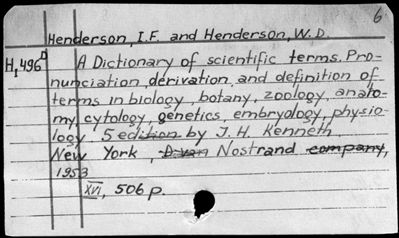 6
Henderson, I.F. and Henderson, W.D.
H,496D A Dictionary of scientific terms. Pro-
nunciation, derivation, and definition of
terms in biology, botany, zoology, anato-
my, cytology, genetics, embryology, physio-
logy. 5 edition by J. H. Kenneth.
New York, D van Nostrand company,
1953
XVI, 506 p.